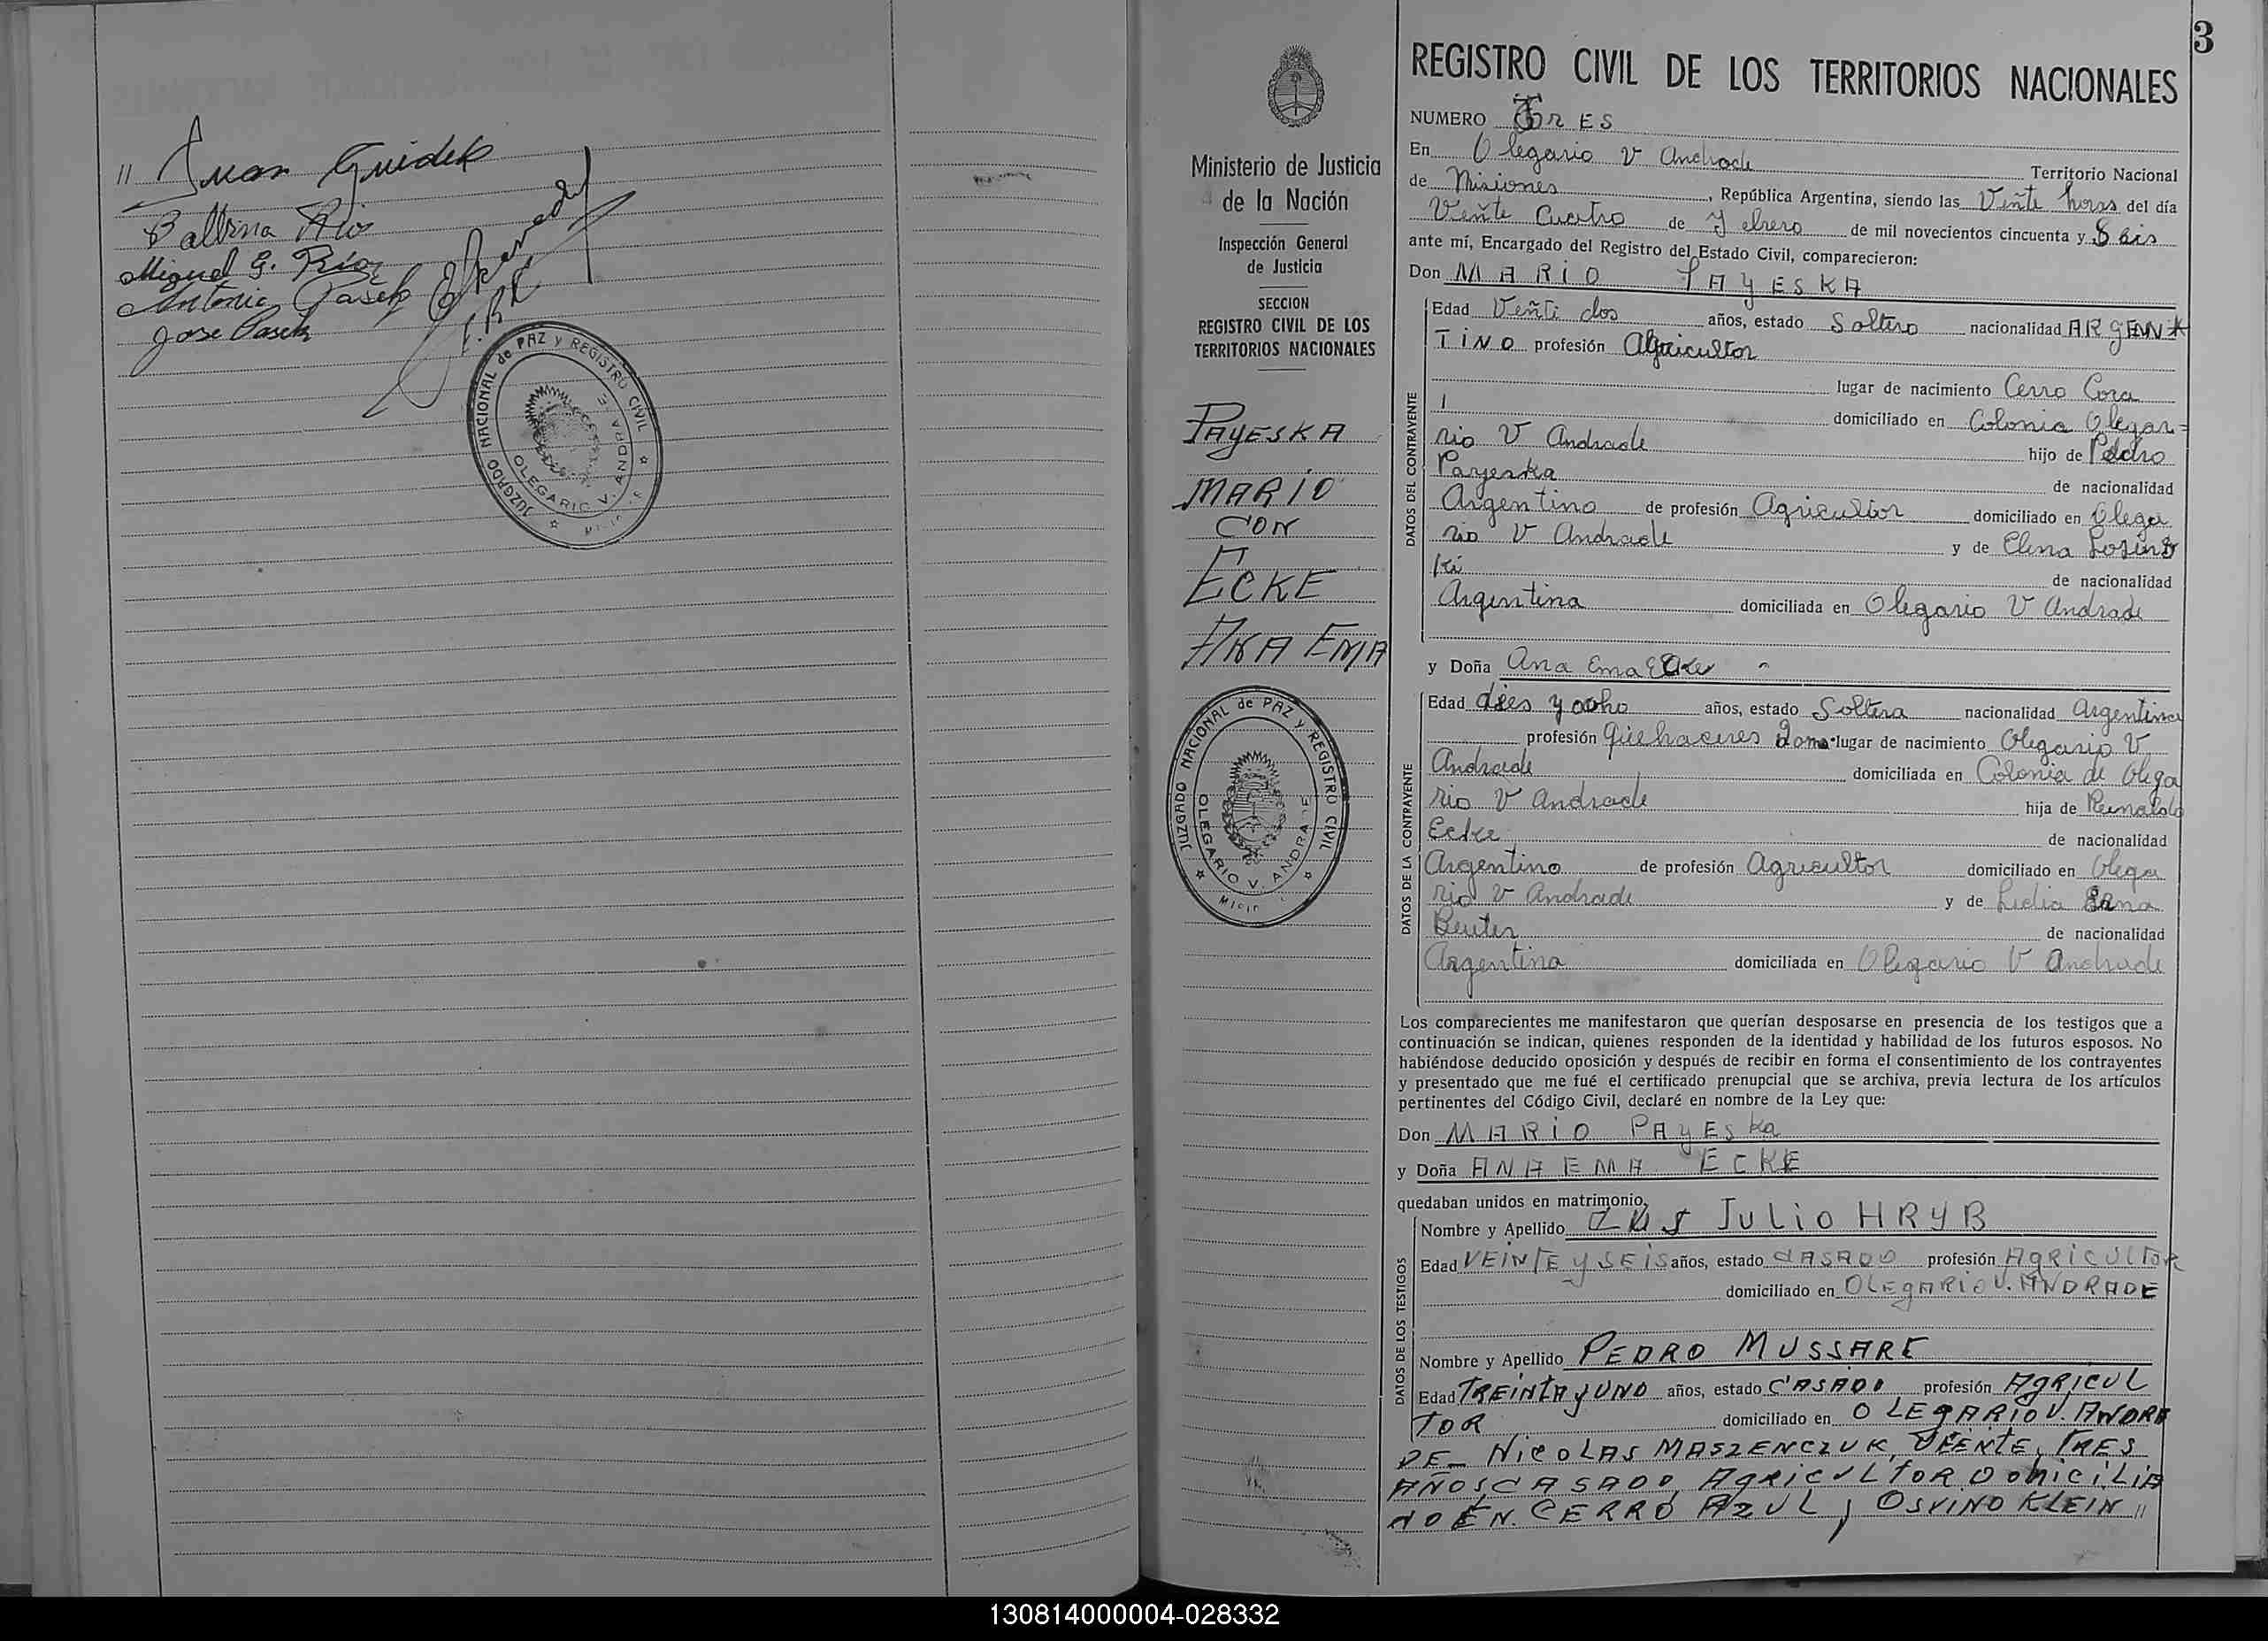 " Juan Guidek
Balbina Rios
Miguel G. Rios
Antonio Pasek
Jose Pasek
JUZGADO NACIONAL de PAZ y REGISTRO CIVIL
OLEGARIO V. ANDRADE
3
Ministerio de Justicia
de la Nación
Inspección General
de Justicia
SECCION
REGISTRO CIVIL DE LOS
TERRITORIOS NACIONALES
PAYESKA
MARIO
CON
ECKE
ANA EMA
JUZGADO NACIONAL de PAZ y REGISTRO CIVIL
OLEGARIO V. ANDRADE
REGISTRO CIVIL DE LOS TERRITORIOS NACIONALES
NUMERO TRES
En Olegario V Andrade Territorio Nacional
de Misiones, República Argentina, siendo las Veñte horas del día
Veñte Cuatro de Febrero de mil novecientos cincuenta y Seis
ante mí, Encargado del Registro del Estado Civil, comparecieron:
Don MARIO PAYESKA
DATOS DEL CONTRAYENTE
Edad Veñti dos años, estado Soltero nacionalidad ARGEN
TINO profesión Agricultor
lugar de nacimiento Cerro Cora
domiciliado en Colonia Olegar=
rio V Andrade hijo de Pedro
Payeska de nacionalidad
Argentino de profesión Agricultor domiciliado en Olega
rio V Andrade y de Elena
ki de nacionalidad
Argentina domiciliada en Olegario V Andrade
y Doña Ana Ema Ecke
DATOS DE LA CONTRAYENTE
Edad dies y ocho años, estado Soltera nacionalidad Argentina
profesión Quehaceres Dom. lugar de nacimiento Olegario V
Andrade domiciliada en Colonia de Olega
rio V Andrade hija de Reinaldo
Ecke de nacionalidad
Argentino de profesión Agricultor domiciliado en Olega
rio V Andrade y de Lidia Erna
Reuter de nacionalidad
Argentina domiciliada en Olegario V Andrade
Los comparecientes me manifestaron que querían desposarse en presencia de los testigos que a
continuación se indican, quienes responden de la identidad y habilidad de los futuros esposos. No
habiéndose deducido oposición y después de recibir en forma el consentimiento de los contrayentes
y presentado que me fué el certificado prenupcial que se archiva, previa lectura de los artículos
pertinentes del Código Civil, declaré en nombre de la Ley que:
Don MARIO PAYESka
y Doña ANA EMA ECKE
quedaban unidos en matrimonio.
DATOS DE LOS TESTIGOS
Nombre y Apellido JULIO HRYB
Edad VEINTE y SEIS años, estado CASADO profesión AGRICULTOR
domiciliado en OLEGARIO V. ANDRADE
Nombre y Apellido PEDRO MUSSARE
Edad TREINTA y UNO años, estado CASADO profesión AGRICUL
TOR domiciliado en OLEGARIO V. ANDRA
DE_ NICOLAS MASZENCZUK, VEENTE, TRES
AÑOS CASADO, AGRICULTOR DOMICILIA
DO EN CERRO AZUL, OSVINO KLEIN "
130814000004-028332